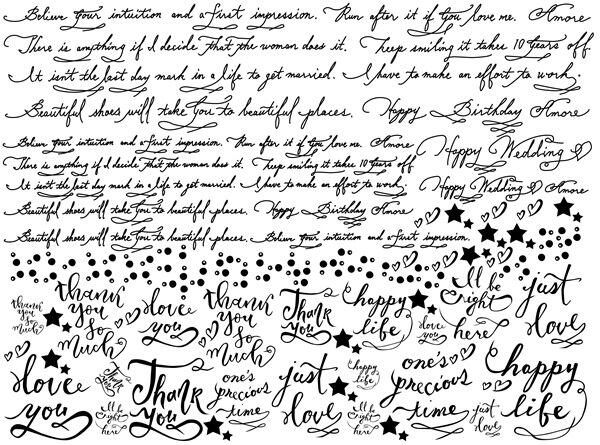 Believe your intuition and a first impression. Run after it if you love me. Amore
There is anything if I decide that the woman does it. Keep smiling it takes 10 years off.
It isn't the last day mark in a life to get married. I have to make an effort to work.
Beautiful shoes will take you to beautiful places. Happy Birthday Amore
Believe your intuition and a first impression. Run after it if you love me. Amore
Happy Wedding
There is anything if I decide that the woman does it. Keep smiling it takes 10 years off
It isn't the last day mark in a life to get married. I have to make an effort to work.
Happy Wedding Amore
Beautiful shoes will take you to beautiful places. Happy Birthday Amore
Beautiful shoes will take you to beautiful places. Believe your intuition and a first impression.
thank
you
so
much
thank
you
so
much
love
you
thank
you
so
much
Thank
you
happy
life
love
you
I'll be
right
here
just
love
love
you
Thank
you
I'll be
right
here
Thank
you
one's
precious
time
just
love
happy
life
love
you
one's
precious
time
just
love
happy
life